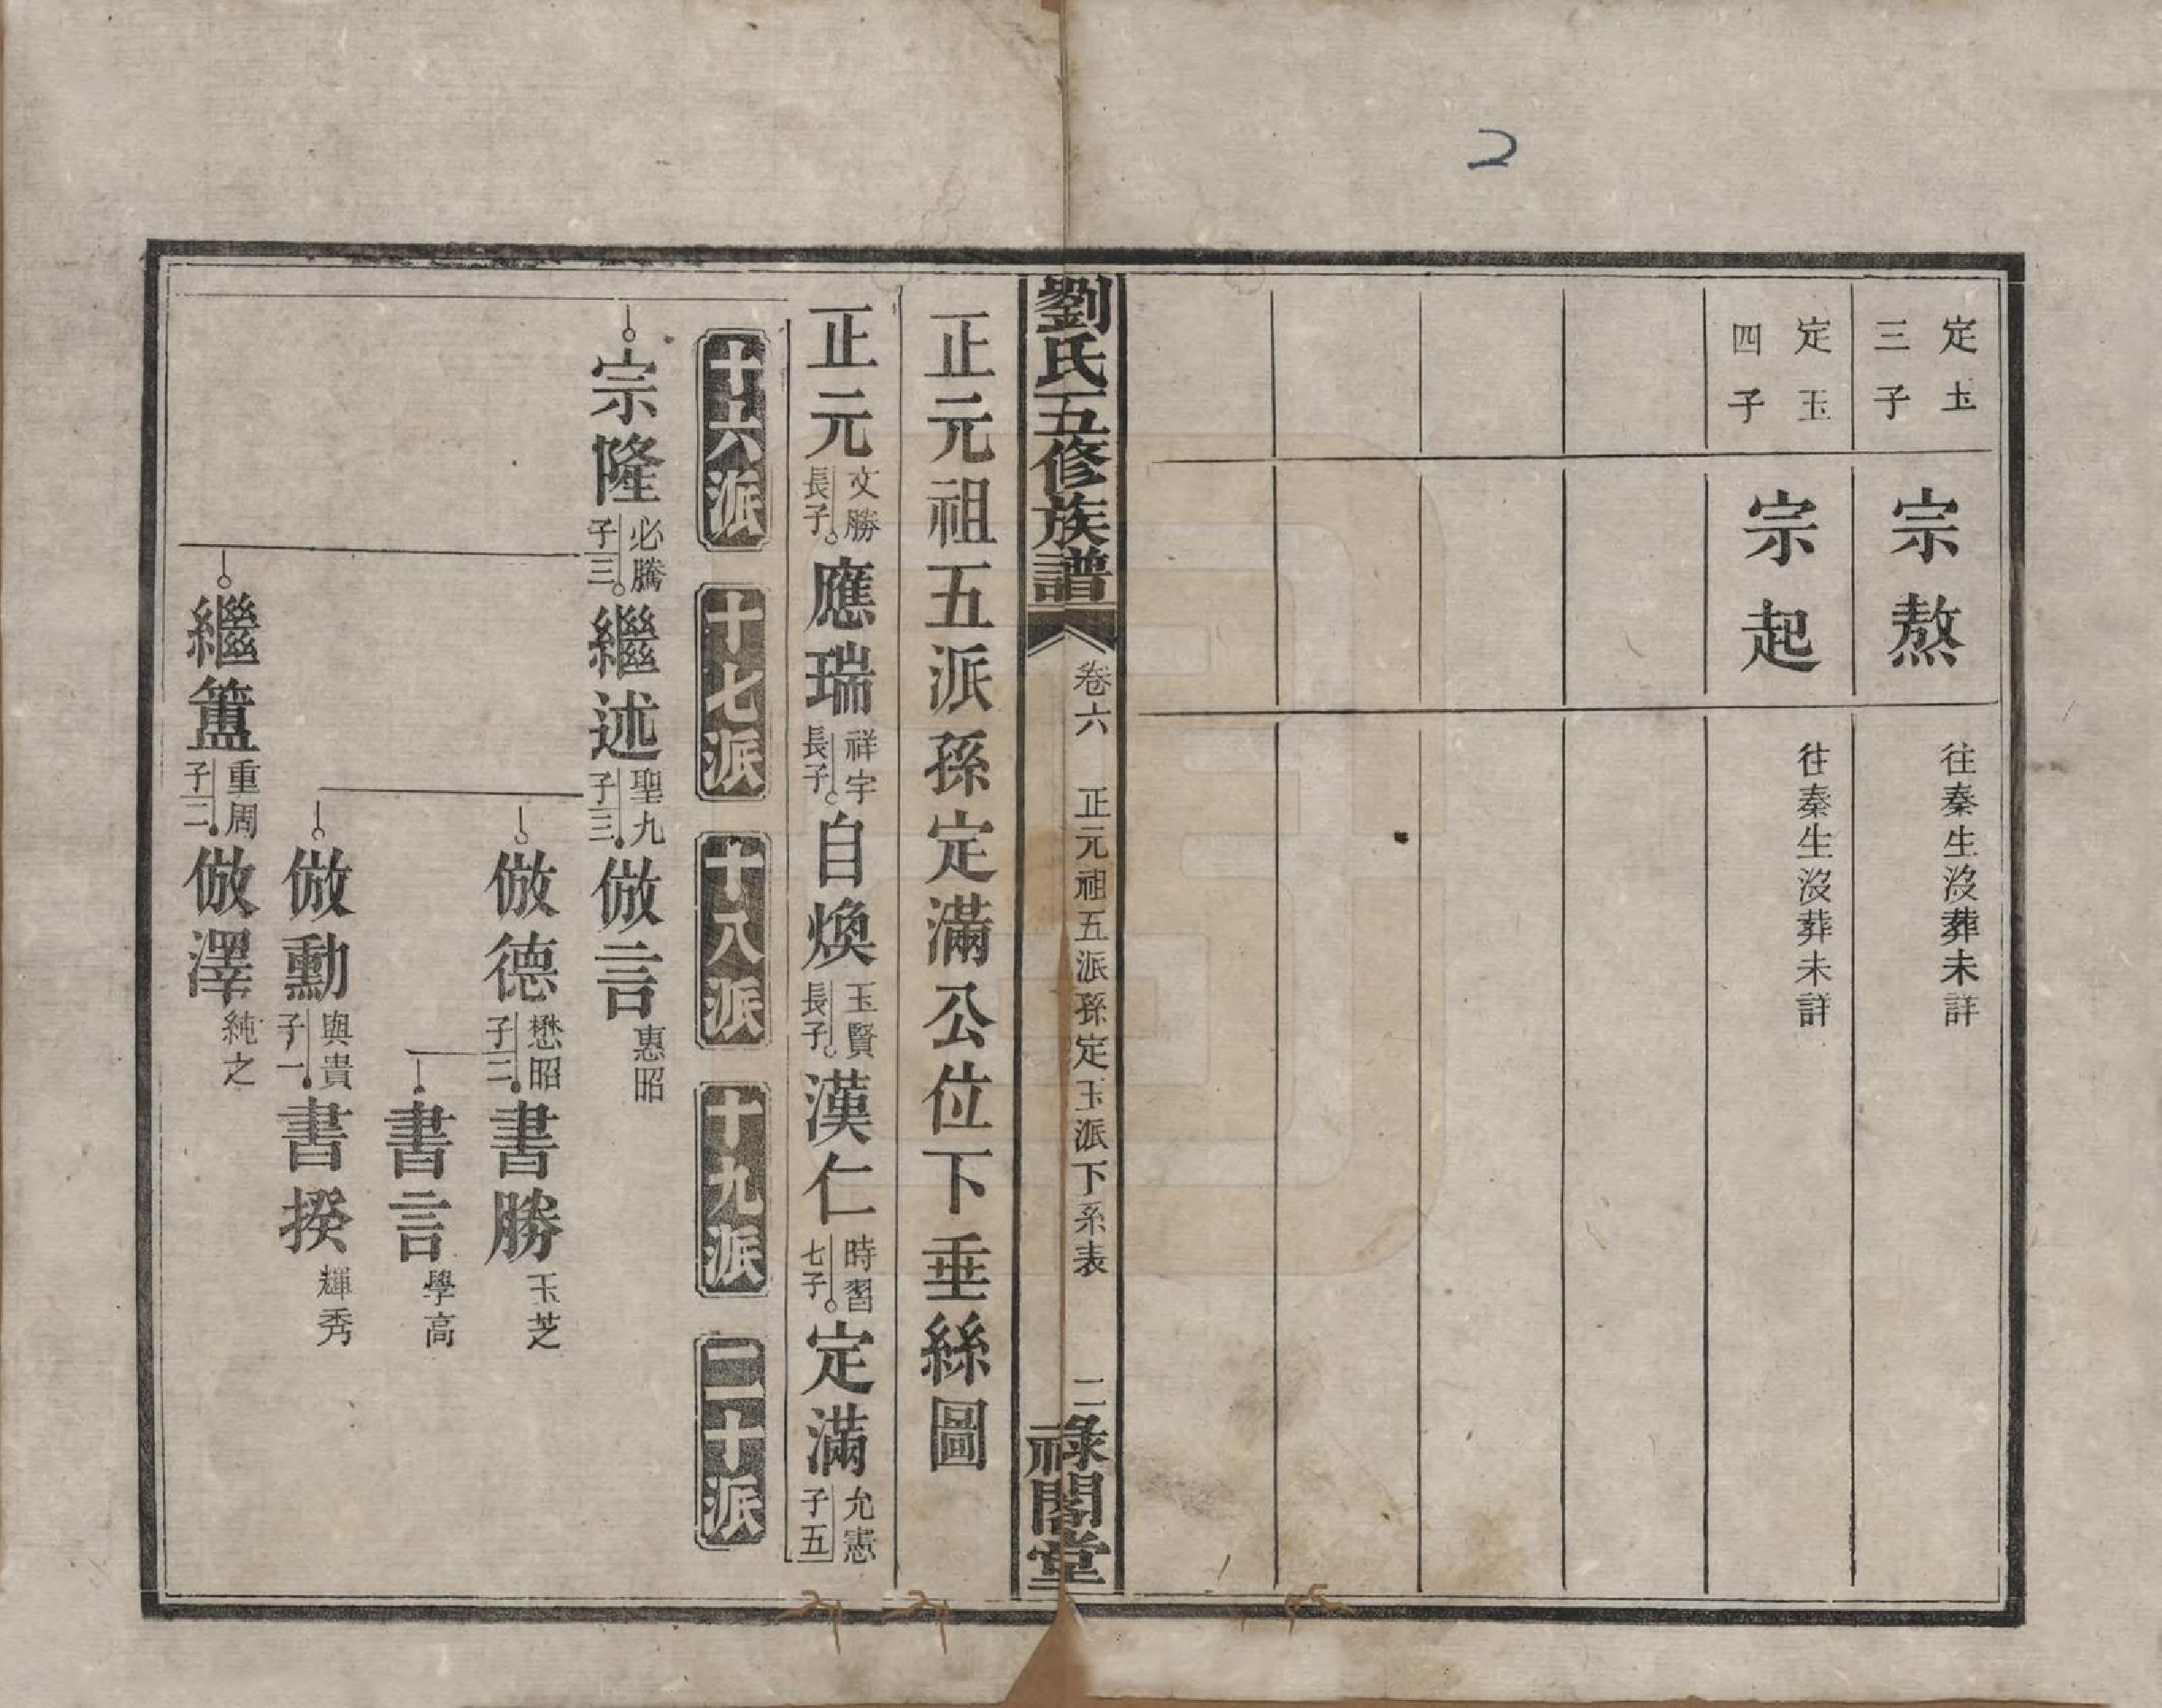 2
定玉
三子
宗熬
往秦生沒葬未詳
定玉
四子
宗起
往秦生沒葬未詳
劉氏五修族譜
卷六
正元祖五派孫定玉派下系表
二
祿閣堂
正元祖五派孫定滿公位下垂絲圖
正元
文勝
長子
應瑞
祥宇
長子
自煥
玉賢
長子
漢仁
時習
七子
定滿
允憲
子五
十六派
十七派
十八派
十九派
二十派
宗隆
必騰
子三
繼述
聖九
子三
倣言
惠昭
倣德
懋昭
子二
書勝
玉芝
書言
學高
倣勳
與貴
子一
書揆
輝秀
繼簠
重周
子二
倣澤
純之